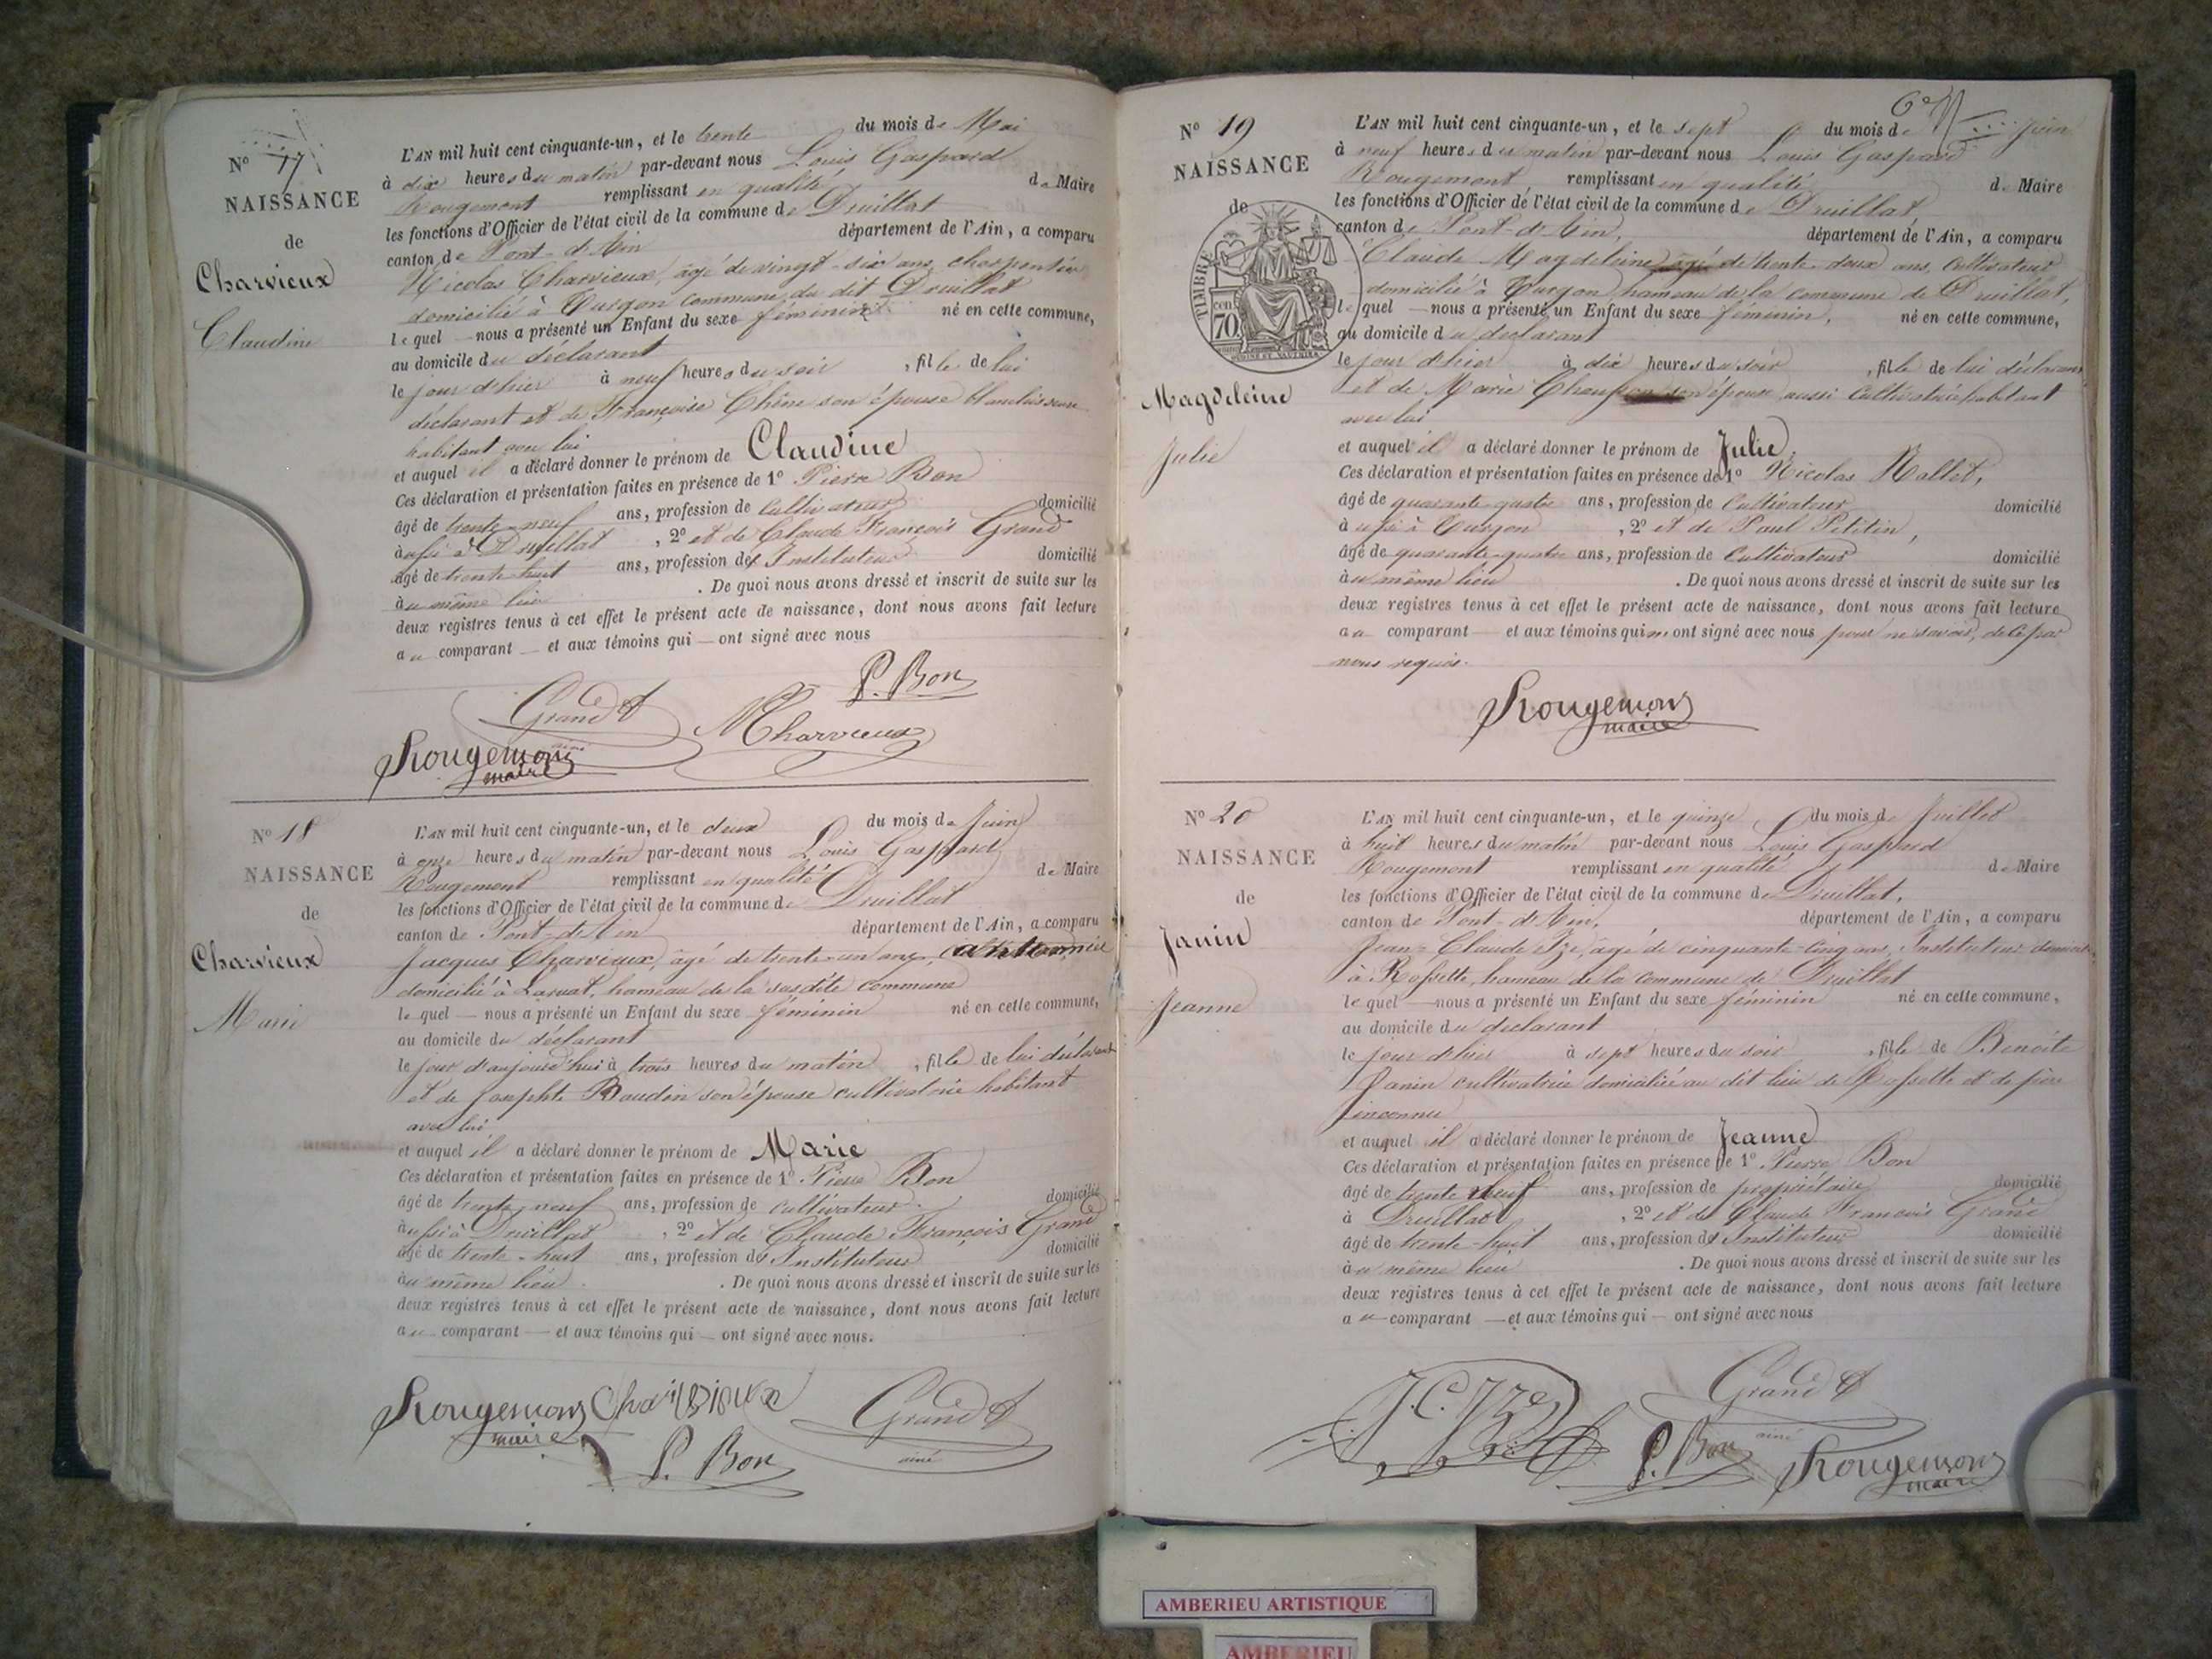 N° 17
NAISSANCE
de
Charvieux
Claudine
L'AN mil huit cent cinquante-un, et le trente du mois de Mai
à dix heures du matin par-devant nous Louis Gaspard
Rougemont remplissant en qualité de Maire
les fonctions d'Officier de l'état civil de la commune de Druillat
canton de Pont-d'Ain département de l'Ain, a comparu
Nicolas Charvieux, âgé de vingt-six ans, charpentier
domicilié à Turgon commune du dit Druillat
lequel nous a présenté un Enfant du sexe féminin né en cette commune,
au domicile du déclarant
le jour d'hier à neuf heures du soir, fille de lui
déclarant et de Françoise Chêne son épouse blanchisseuse
habitant avec lui
et auquel il a déclaré donner le prénom de Claudine
Ces déclaration et présentation faites en présence de 1° Pierre Bon
âgé de trente-neuf ans, profession de Cultivateur domicilié
aussi à Druillat, 2° et de Claude François Grand
âgé de trente-huit ans, profession d'Instituteur domicilié
au même lieu. De quoi nous avons dressé et inscrit de suite sur les
deux registres tenus à cet effet le présent acte de naissance, dont nous avons fait lecture
au comparant et aux témoins qui ont signé avec nous
P. Bon
Grand
N Charvieux
Rougemont
maire
N° 18
NAISSANCE
de
Charvieux
Marie
L'AN mil huit cent cinquante-un, et le deux du mois de Juin
à onze heures du matin par-devant nous Louis Gaspard
Rougemont remplissant en qualité de Maire
les fonctions d'Officier de l'état civil de la commune de Druillat
canton de Pont-d'Ain département de l'Ain, a comparu
Jacques Charvieux, âgé de trente-un ans,
domicilié à hameau de la susdite commune
lequel nous a présenté un Enfant du sexe féminin né en cette commune,
au domicile du déclarant
le jour d'aujourd'hui à trois heures du matin, fille de lui déclarant
et de Josephte Baudin son épouse cultivatrice habitant
avec lui
et auquel il a déclaré donner le prénom de Marie
Ces déclaration et présentation faites en présence de 1° Pierre Bon
âgé de trente-neuf ans, profession de cultivateur domicilié
aussi à Druillat, 2° et de Claude François Grand
âgé de trente-huit ans, profession d'Instituteur domicilié
au même lieu. De quoi nous avons dressé et inscrit de suite sur les
deux registres tenus à cet effet le présent acte de naissance, dont nous avons fait lecture
au comparant et aux témoins qui ont signé avec nous.
Rougemont Charvieux Grand
maire
P. Bon aîné
N° 19
NAISSANCE
de
TIMBRE
70 cen
Magdeleine
Julie
L'AN mil huit cent cinquante-un, et le sept du mois de Juin
à neuf heures du matin par-devant nous Louis Gaspard
Rougemont remplissant en qualité de Maire
les fonctions d'Officier de l'état civil de la commune de Druillat
canton de Pont-d'Ain, département de l'Ain, a comparu
Claude Magdeleine, âgé de trente-deux ans, cultivateur
domicilié à Turgon hameau de la commune de Druillat,
lequel nous a présenté un Enfant du sexe féminin, né en cette commune,
au domicile du déclarant
le jour d'hier à dix heures du soir, fille de lui déclarant
et de Marie son épouse aussi cultivatrice habitant
avec lui
et auquel il a déclaré donner le prénom de Julie
Ces déclaration et présentation faites en présence de 1° Nicolas Rallet,
âgé de quarante-quatre ans, profession de Cultivateur domicilié
aussi à Turgon, 2° et de Paul Petitin,
âgé de quarante-quatre ans, profession de Cultivateur domicilié
au même lieu. De quoi nous avons dressé et inscrit de suite sur les
deux registres tenus à cet effet le présent acte de naissance, dont nous avons fait lecture
au comparant et aux témoins qui n'ont signé avec nous pour ne savoir, de ce par
nous requis.
Rougemont
maire
N° 20
NAISSANCE
de
Janin
Jeanne
L'AN mil huit cent cinquante-un, et le quinze du mois de Juillet
à huit heures du matin par-devant nous Louis Gaspard
Rougemont remplissant en qualité de Maire
les fonctions d'Officier de l'état civil de la commune de Druillat,
canton de Pont-d'Ain, département de l'Ain, a comparu
Jean-Claude Ize, âgé de cinquante-cinq ans, Instituteur domicilié
à Rossette, hameau de la commune de Druillat
lequel nous a présenté un Enfant du sexe féminin né en cette commune,
au domicile du déclarant
le jour d'hier à sept heures du soir, fille de Benoîte
Janin cultivatrice domiciliée au dit lieu de Rossette et de père
inconnu
et auquel il a déclaré donner le prénom de Jeanne
Ces déclaration et présentation faites en présence de 1° Pierre Bon
âgé de trente neuf ans, profession de propriétaire domicilié
à Druillat, 2° et de Claude François Grand
âgé de trente-huit ans, profession d'Instituteur domicilié
au même lieu. De quoi nous avons dressé et inscrit de suite sur les
deux registres tenus à cet effet le présent acte de naissance, dont nous avons fait lecture
au comparant et aux témoins qui ont signé avec nous
J.C. Ize
Grand
aîné
P. Bon
Rougemont
maire
AMBERIEU ARTISTIQUE
AMBERIEU